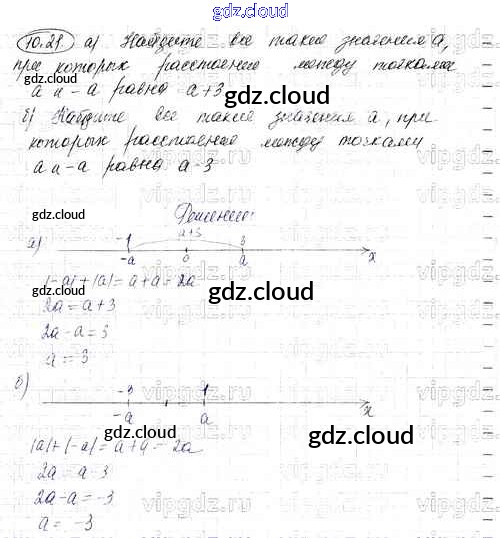 gdz.cloud
10.21. а) Найдите все такие значения а,
при которых расстояние между точками
а и -а равно а+3
gdz.cloud
б) Найдите все такие значения а, при
которых расстояние между точками
а и -а равно а-3
gdz.cloud
Решение:
gdz.cloud
а) -1 а+3 3
-а 0 а х
|-а|+|а|= а+а= 2а
gdz.cloud
2а=а+3
2а-а=3
а=3
б) -3 1
-а а х
gdz.cloud
|а|+|-а|= а+а= 2а
gdz.cloud
2а= а-3
2а-а=-3
а= -3
vipgdz